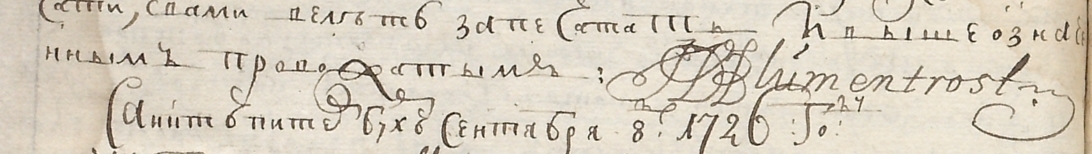 сати, спами велѣть запечатать и вышеозна
ннымъ провожатымъ: Blumentrost
Санктъ питеръ бурхъ Сентября 8: 1726 Го: